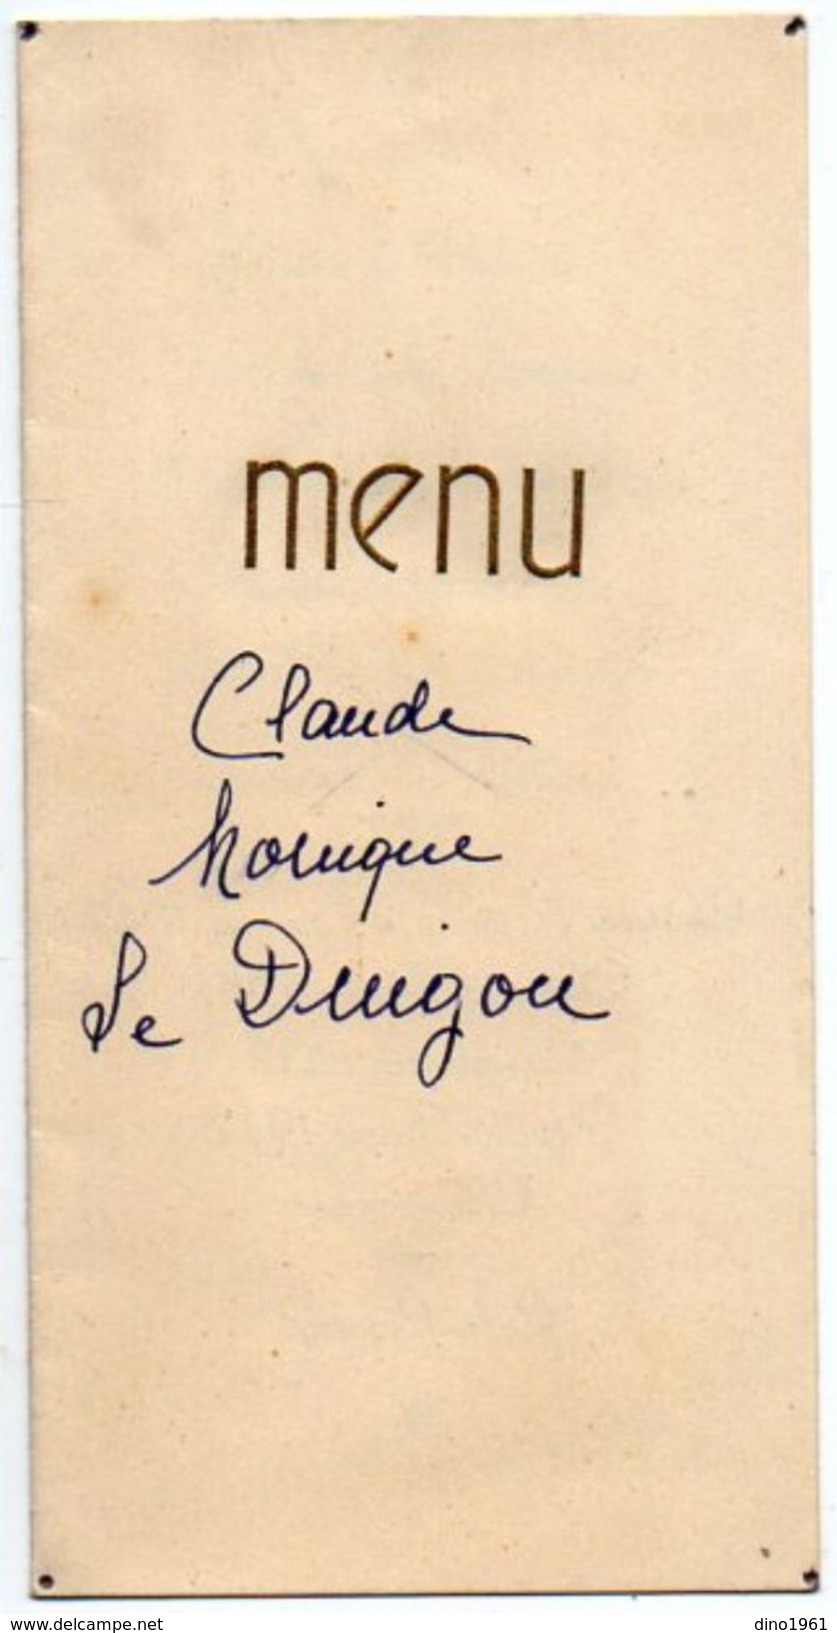 menu
Claude
Monique
Le Duigou
www.delcampe.net
dino1961